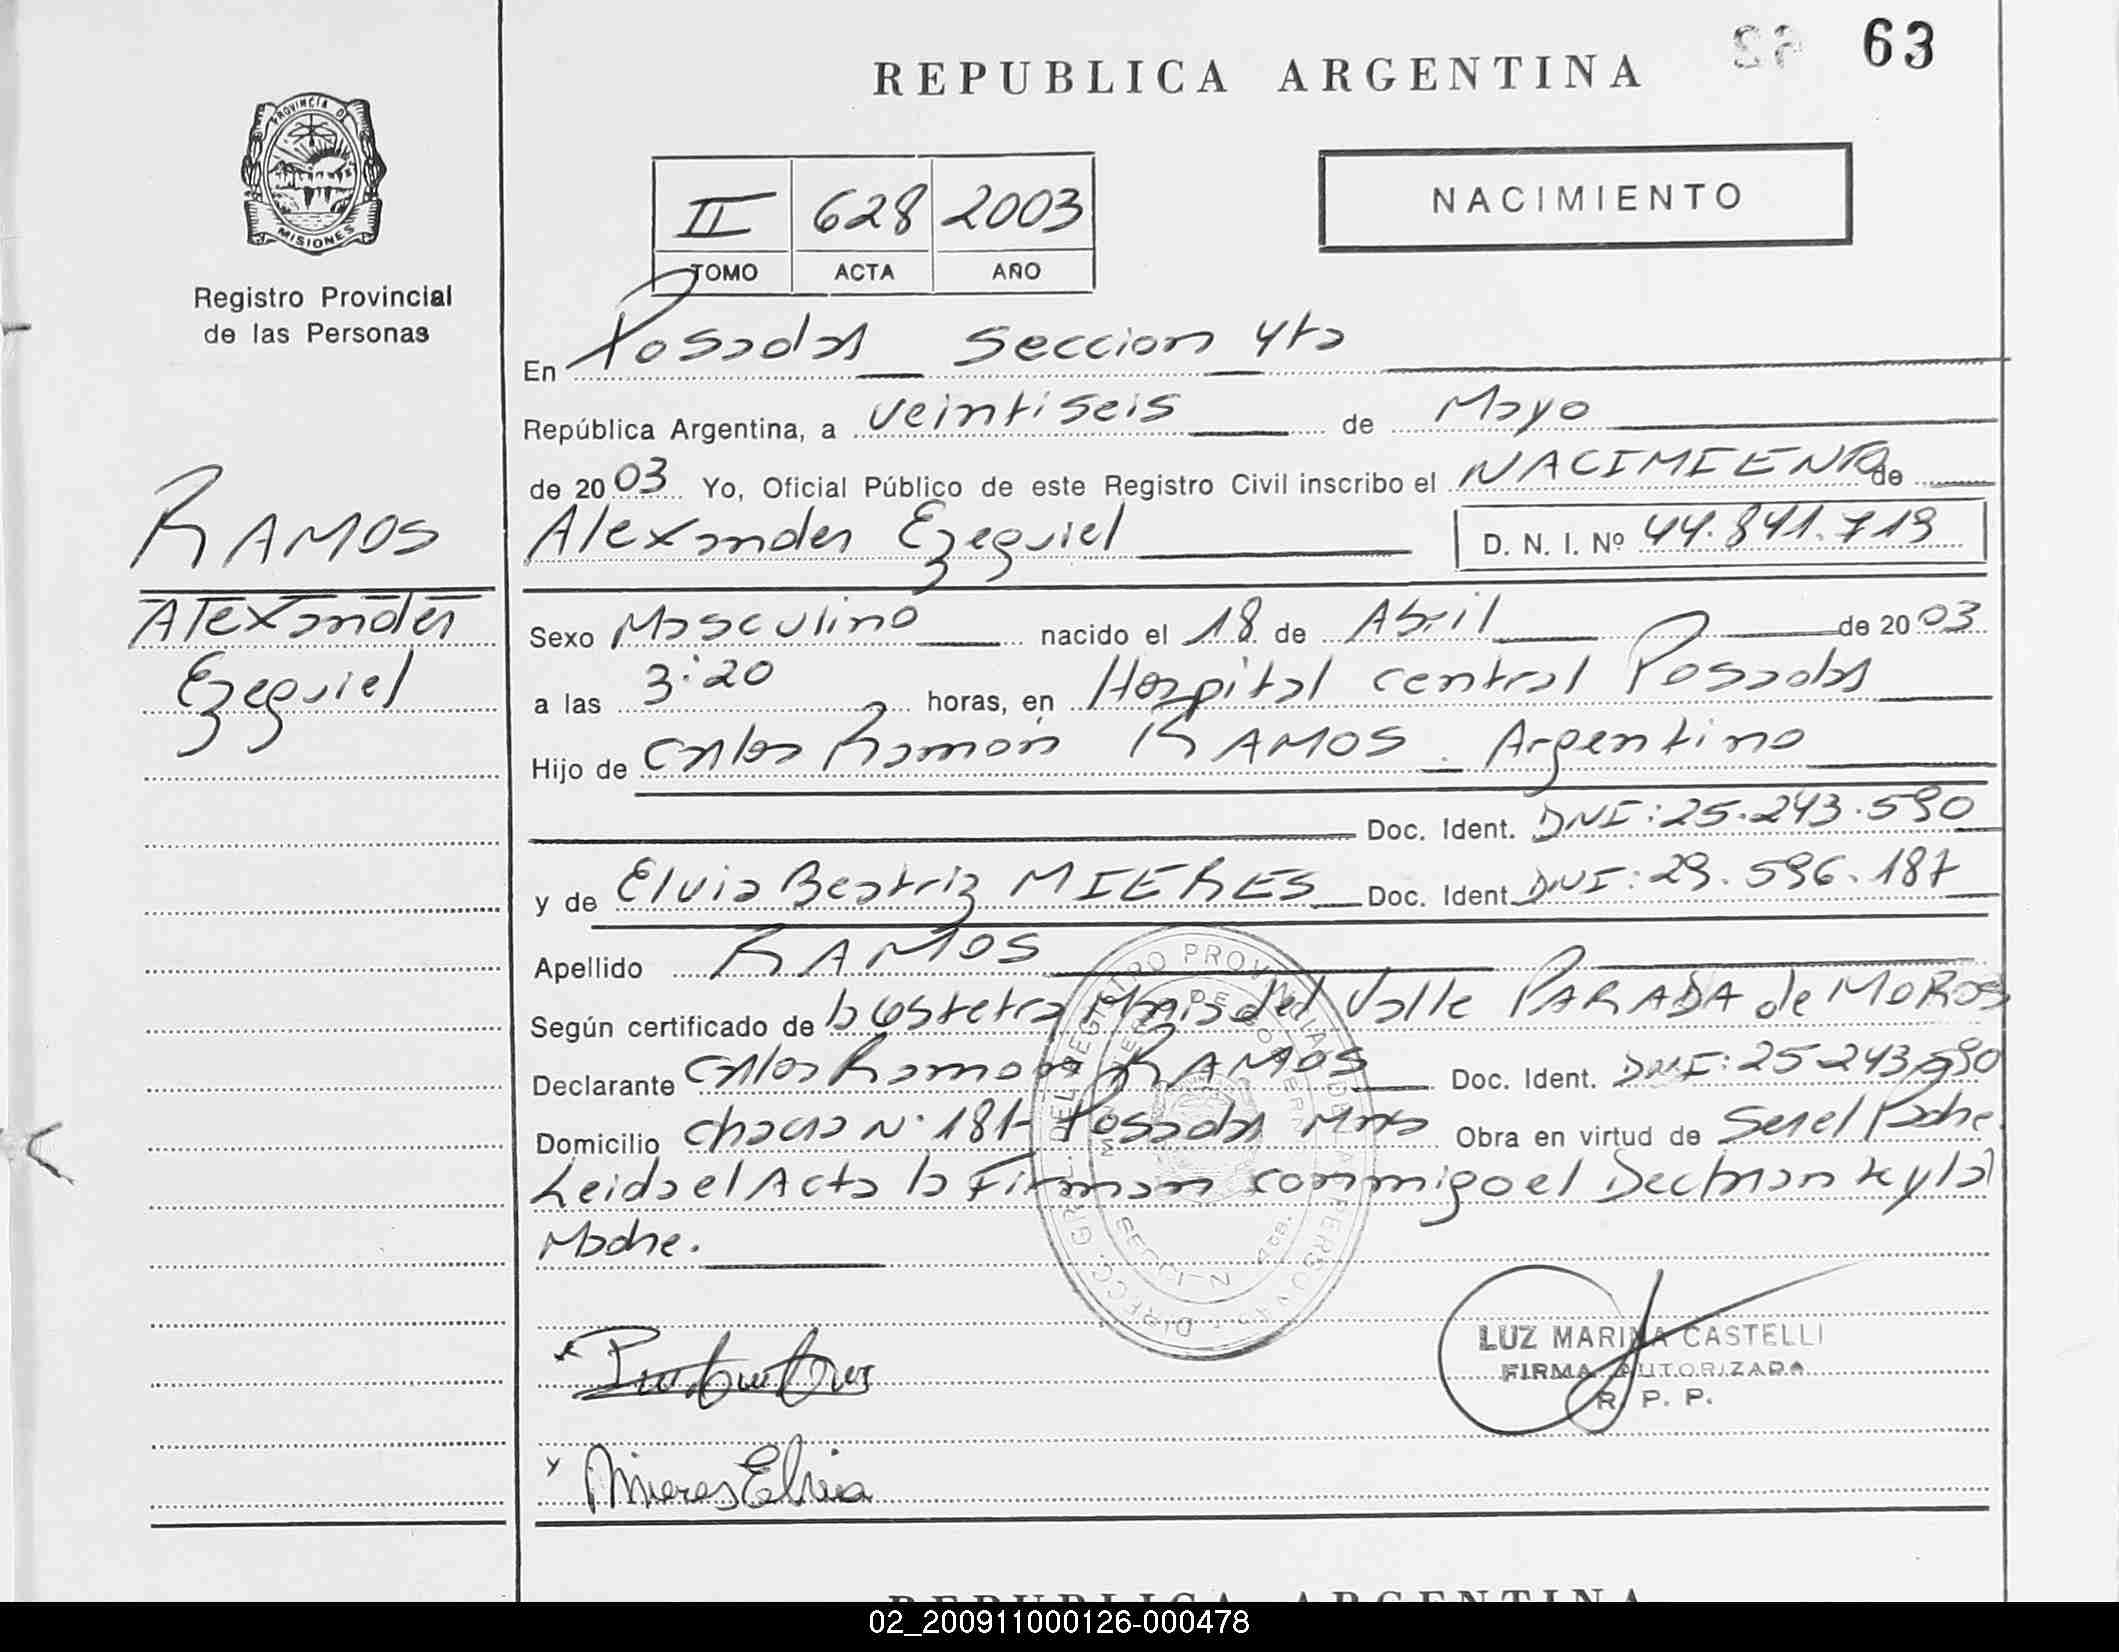 63
REPUBLICA ARGENTINA
PROVINCIA DE
MISIONES
NACIMIENTO
II 628 2003
TOMO ACTA AÑO
Registro Provincial
de las Personas
En Posadas Seccion 4ta
República Argentina, a veintiseis de Mayo
de 2003 Yo, Oficial Público de este Registro Civil inscribo el NACIMIENTO de
Alexander Ezequiel D. N. I. Nº 44.841.719
RAMOS
Alexander
Ezequiel
Sexo Masculino nacido el 18 de Abril de 2003
a las 3:20 horas, en Hospital central Posadas
Hijo de Carlos Ramón RAMOS. Argentino
Doc. Ident. DNI: 25.243.590
y de Elvia Beatriz MIERES Doc. Ident. DNI: 29.596.187
Apellido RAMOS
Según certificado de la Obstetra Maria del Valle PARADA de MOROS
Declarante Carlos Ramon RAMOS Doc. Ident. DNI: 25 243 590
Domicilio chacra Nº 181- Posadas Mnes Obra en virtud de Ser el Padre.
Leida el Acta la Firman conmigo el Declarante y la
Madre.
LUZ MARINA CASTELLI
FIRMA AUTORIZADA
R. P. P.
Mieres Elvia
REPUBLICA ARGENTINA
02_200911000126-000478